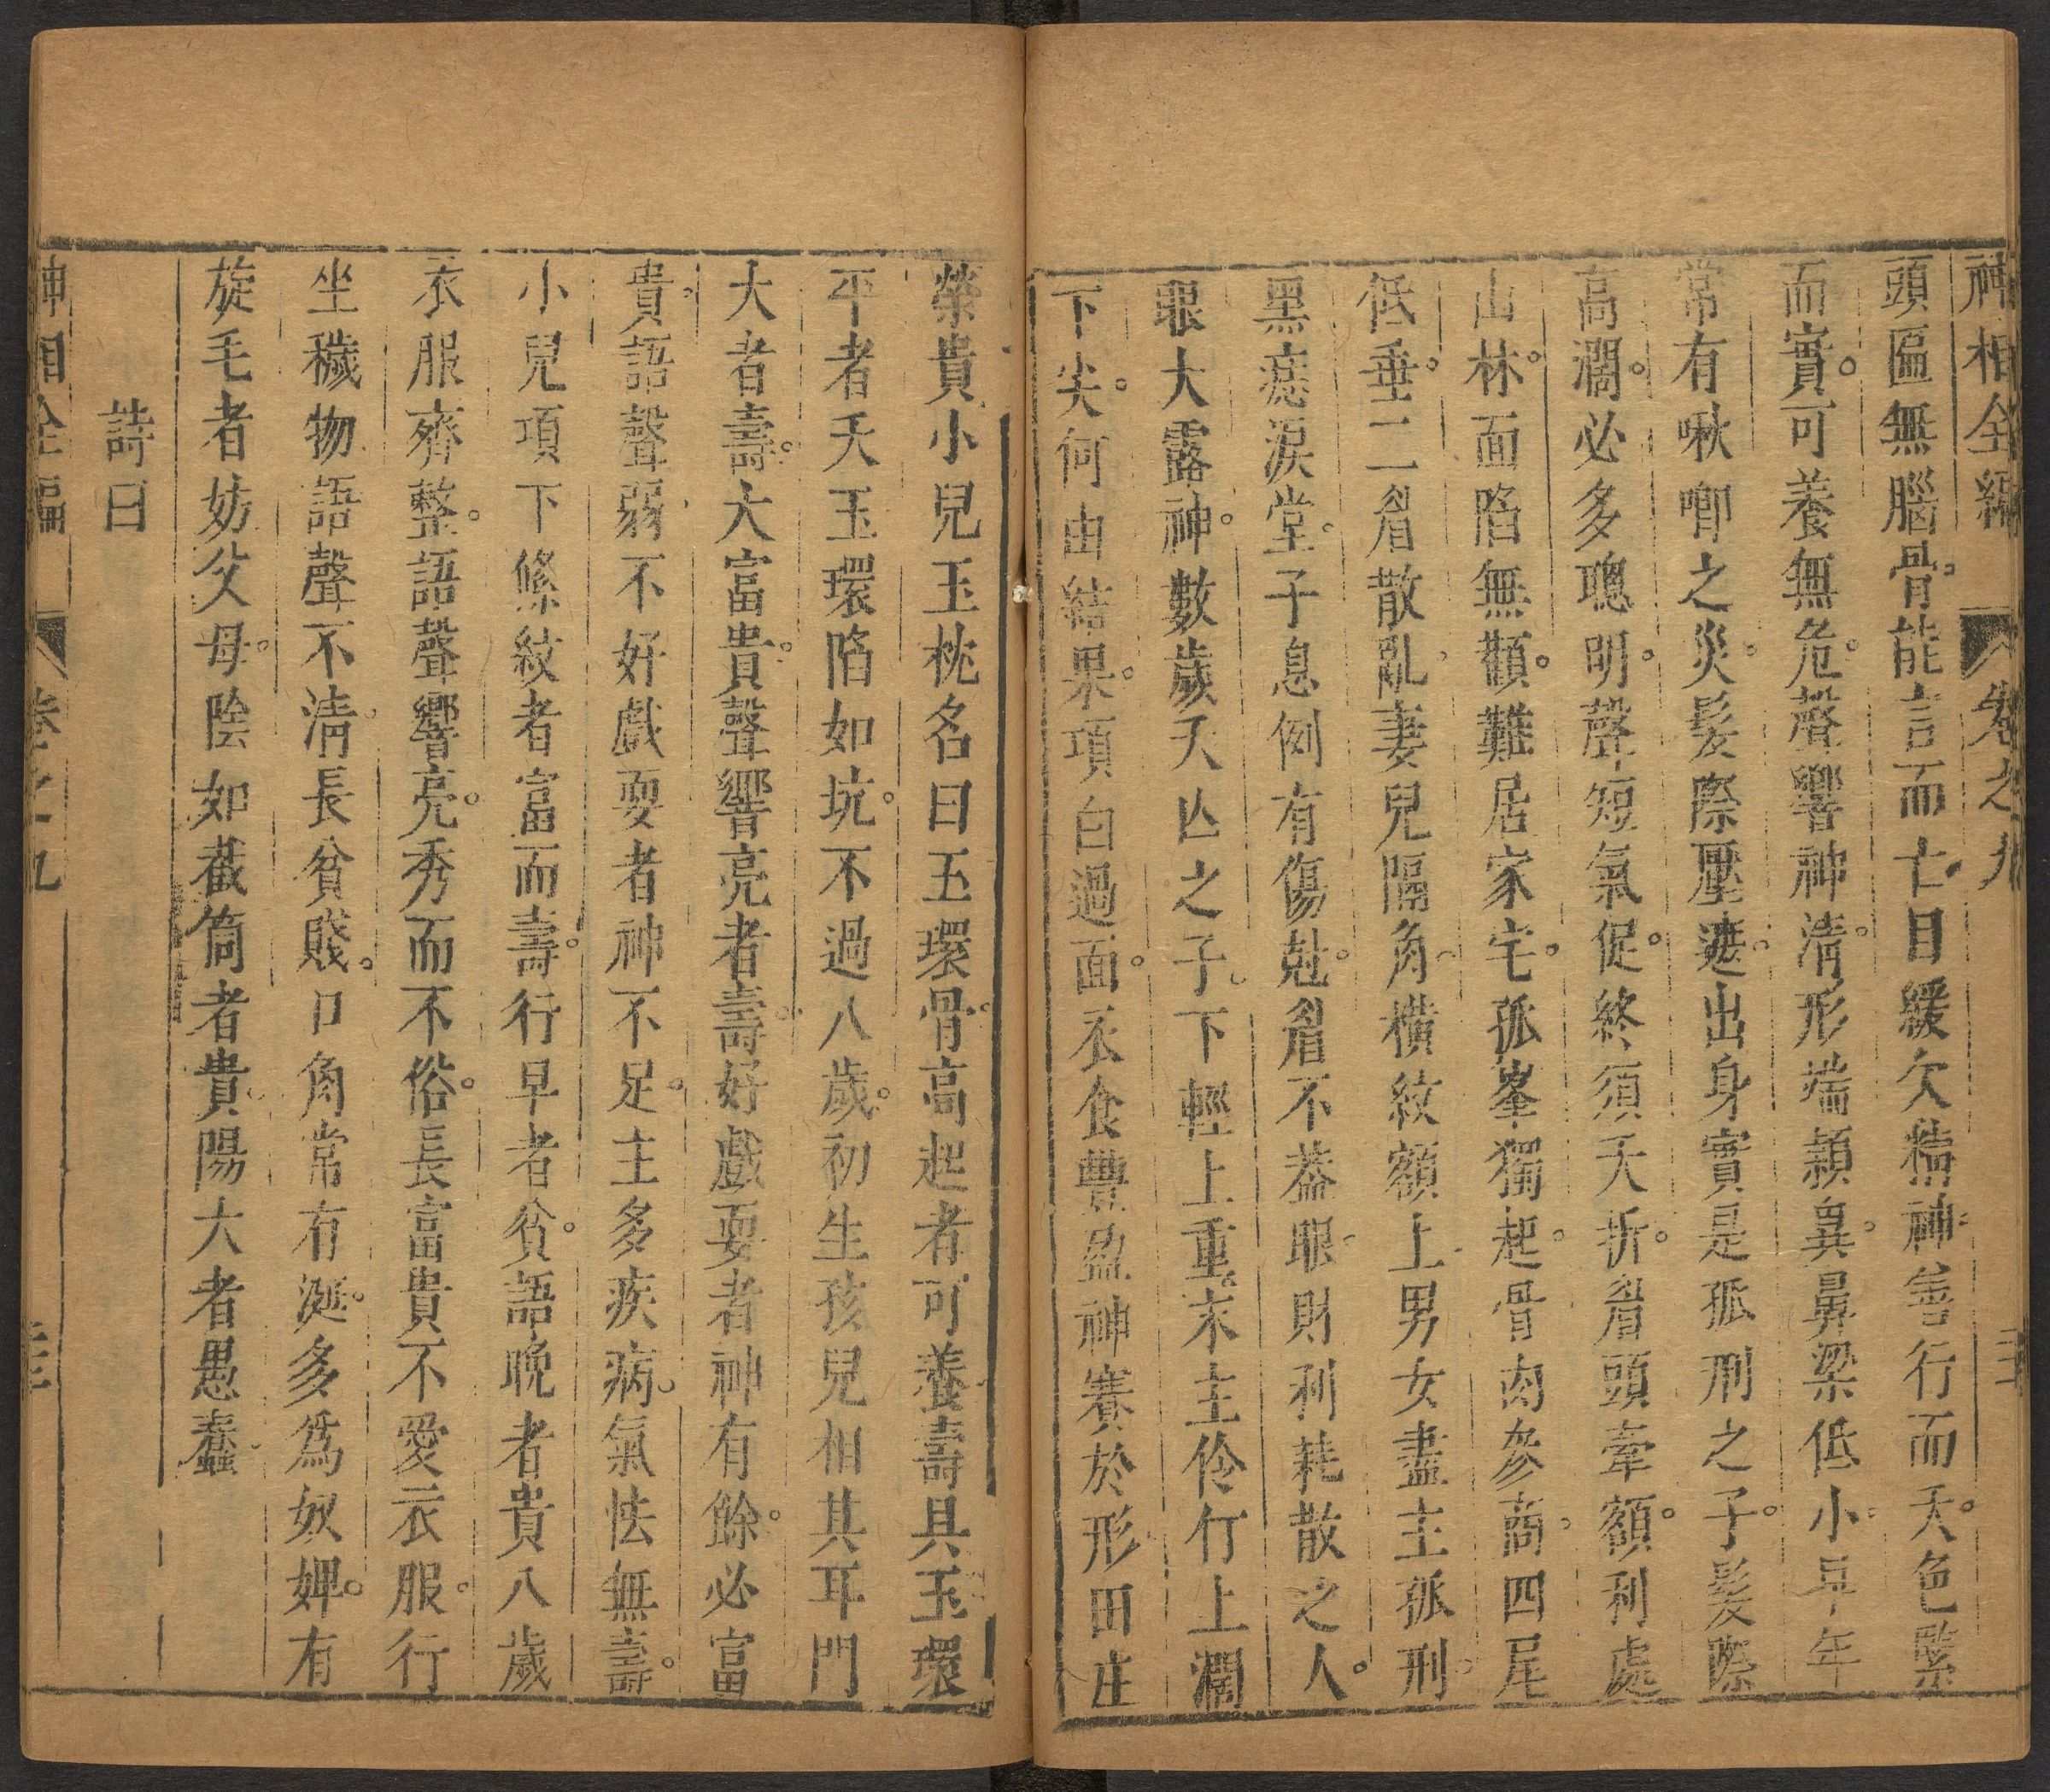 神相全編 卷之九
頭匾無腦骨。能言而亡。目緩欠精神。善行而夭。色緊
而實。可養無危。聲響神清。形端穎異。鼻梁低小。早年
常有啾唧之災。髮際壓遮。出身實是孤刑之子。髮際
高濶。必多聰明。聲短氣促。終須夭折。眉頭牽額。利處
山林。面陷無顴。難居家宅。孤峯獨起。骨肉參商。四尾
低垂。二眉散亂。妻兒隔角。橫紋額上。男女盡主孤刑。
黑痣淚堂。子息例有傷尅。眉不蓋眼。財利耗散之人。
眼大露神。數歲夭亾之子。下輕上重。末主伶仃。上濶
下尖。何由結果。項白過面。衣食豐盈。神賽於形。田庄
榮貴小兒玉枕名曰玉環骨。高起者可養壽具玉環
平者夭玉環陷如坑。不過八歲。初生孩兒相其耳門
大者壽。大富貴。聲響亮者壽。好戲耍者神有餘。必富
貴。語聲弱。不好戲耍者神不足。主多疾病。氣怯無壽。
小兒項下絛紋者富而壽。行早者貧。語晚者貴八歲
衣服齊整。語聲響亮。秀而不俗。長富貴不愛衣服。行
坐穢物語聲不清。長貧賤。口角常有涎。多為奴婢。有
旋毛者妨父母。陰如截筒者貴。陽大者愚蠢。
詩曰
神相全編 卷之九